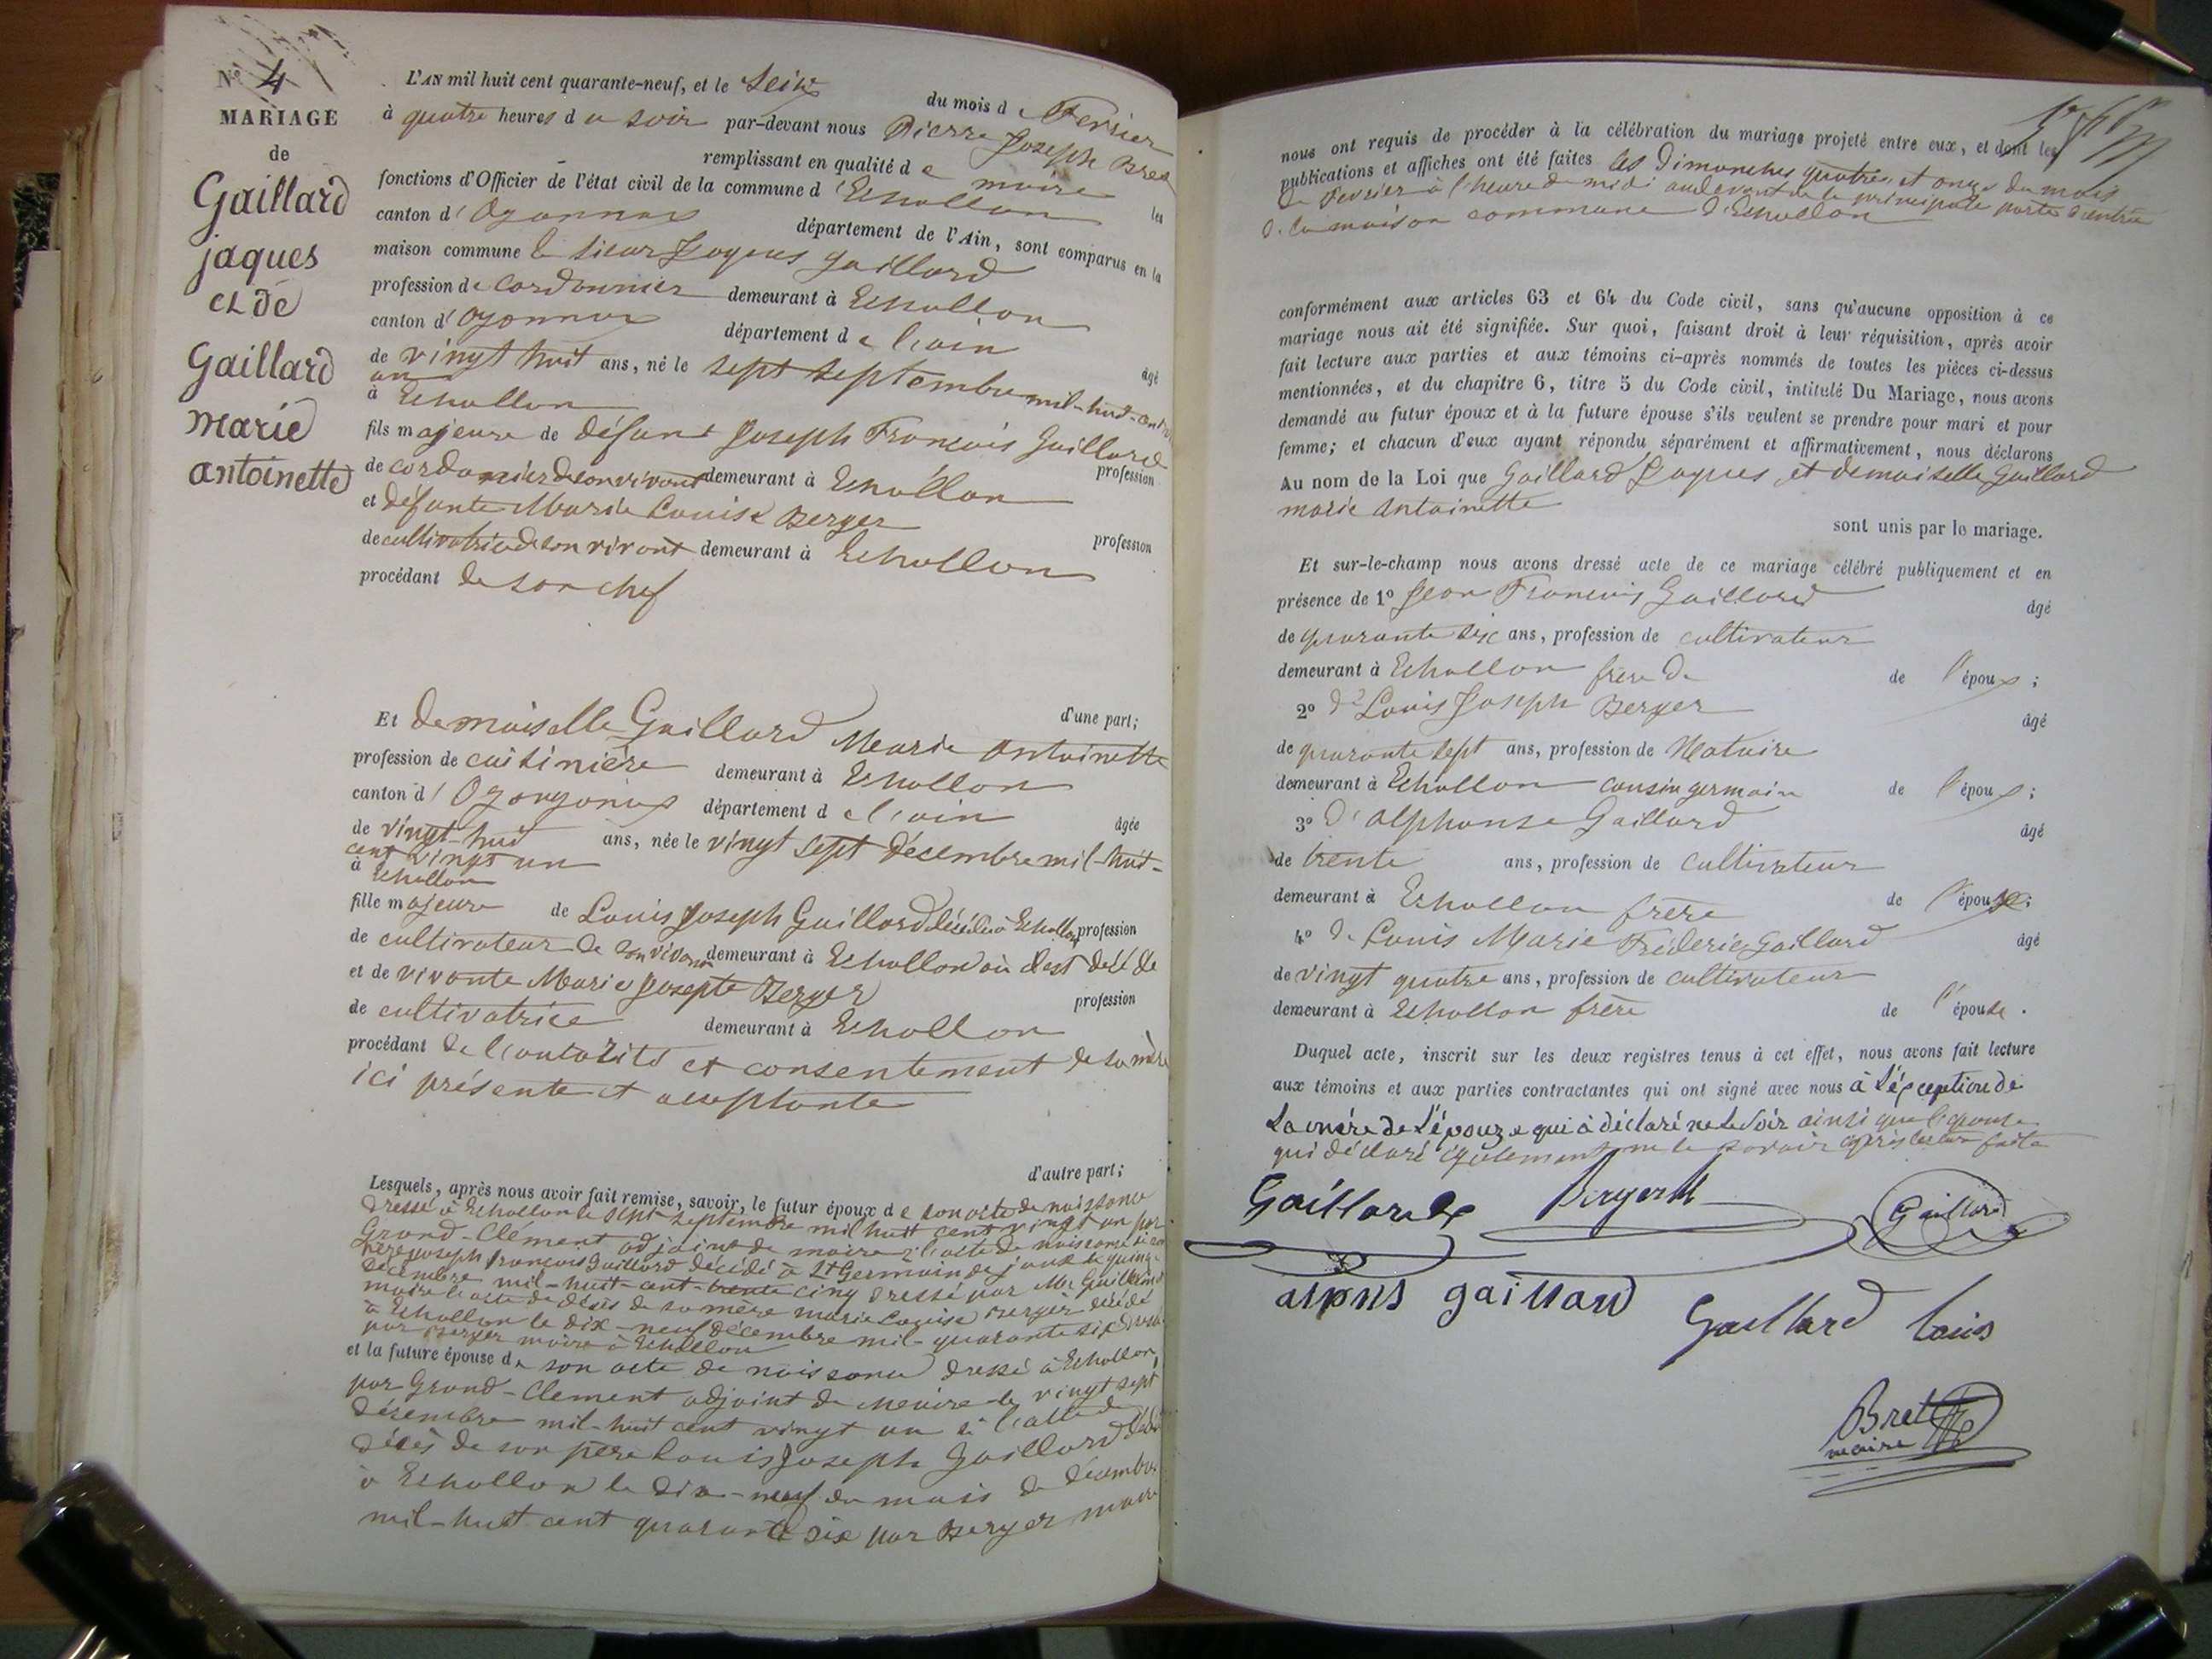 N° 4
MARIAGE
de
Gaillard
jaques
et de
Gaillard
marie
antoinette
L'AN mil huit cent quarante-neuf, et le Seize du mois de Fevrier
à quatre heures du soir par-devant nous Pierre Joseph Bret
remplissant en qualité de maire les
fonctions d'Officier de l'état civil de la commune d'Echallon
canton d'Oyonnax département de l'Ain, sont comparus en la
maison commune le sieur Jaques Gaillard
profession de cordonnier demeurant à Echallon
canton d'Oyonnax département de l'ain âgé
de vingt huit ans, né le sept septembre mil-huit-cent
un
à Echallon
fils majeure de défunt Joseph François Gaillard profession
de cordonnier de son vivant demeurant à Echallon
et défunte Marie Louise Berger profession
de cultivatrice de son vivant demeurant à Echallon
procédant de son chef
d'une part;
Et demoiselle Gaillard Marie Antoinette
profession de cuisinière demeurant à Echallon
canton d'Oyonnax département de l'ain âgée
de vingt-huit ans, née le vingt sept décembre mil-huit-
cent vingt un
à Echallon
fille majeure de Louis Joseph Gaillard décédé à Echallon profession
de cultivateur de son vivant demeurant à Echallon où il est décédé
et de vivante Marie Josepte Berger profession
de cultivatrice demeurant à Echallon
procédant de l'autorité et consentement de sa mère
ici présente et acceptante
d'autre part;
Lesquels, après nous avoir fait remise, savoir, le futur époux de son acte de naissance
dressé à Echallon le sept septembre mil huit cent vingt un par
Grand-Clément adjoint de maire 2° l'acte de naissance de son
père joseph françois Gaillard décédé à St Germain de joux le quinze
décembre mil-huit-cent-trente cinq dressé par Mr Guillermet
maire l'acte de décès de sa mère marie Louise Berger décédé
à Echallon le dix-neuf décembre mil-quarante six dressé
par Berger maire à Echallon
et la future épouse de son acte de naissance dressé à Echallon,
par Grand-Clement adjoint de Maire le vingt sept
décembre mil-huit cent vingt un à l'acte de
décès de son père Louis Joseph Gaillard décédé
à Echallon le dix-neuf du mois de décembre
mil-huit cent quarante six par Berger maire
nous ont requis de procéder à la célébration du mariage projeté entre eux, et dont les
publications et affiches ont été faites les Dimanches quatre et onze du mois
de Fevrier à l'heure de midi au devant de la principale porte d'entrée
de la maison commune d'Echallon
conformément aux articles 63 et 64 du Code civil, sans qu'aucune opposition à ce
mariage nous ait été signifiée. Sur quoi, faisant droit à leur réquisition, après avoir
fait lecture aux parties et aux témoins ci-après nommés de toutes les pièces ci-dessus
mentionnées, et du chapitre 6, titre 5 du Code civil, intitulé Du Mariage, nous avons
demandé au futur époux et à la future épouse s'ils veulent se prendre pour mari et pour
femme; et chacun d'eux ayant répondu séparément et affirmativement, nous déclarons
Au nom de la Loi que Gaillard Jaques et demoiselle Gaillard
marie Antoinette
sont unis par le mariage.
Et sur-le-champ nous avons dressé acte de ce mariage célébré publiquement et en
présence de 1° Jean François Gaillard âgé
de quarante six ans, profession de cultivateur
demeurant à Echallon frère de de l'époux;
2° de Louis Joseph Berger âgé
de quarante sept ans, profession de Notaire
demeurant à Echallon cousin germain de l'époux;
3° d'alphonse Gaillard âgé
de trente ans, profession de cultivateur
demeurant à Echallon frère de l'épouse;
4° de Louis Marie Fréderic Gaillard âgé
de vingt quatre ans, profession de cultivateur
demeurant à Echallon frère de l'épouse.
Duquel acte, inscrit sur les deux registres tenus à cet effet, nous avons fait lecture
aux témoins et aux parties contractantes qui ont signé avec nous à l'éxception de
La mère de l'épouze qui à déclaré ne le savoir ainsi que l'epouse
qui déclaré également ne le savoir après lecture faite
Gaillard Gaillard
gaillard
Gaillard Louis
Bret
maire